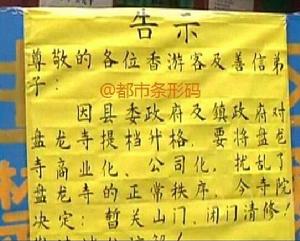 告示
尊敬的各位香游客及善信弟
子：
@都市条形码
因县委政府及镇政府对
盘龙寺提档什格，要将盘龙
寺商业化、公司化，扰乱了
盘龙寺的正常秩序，今寺院
决定：暂关山门、闭门清修！